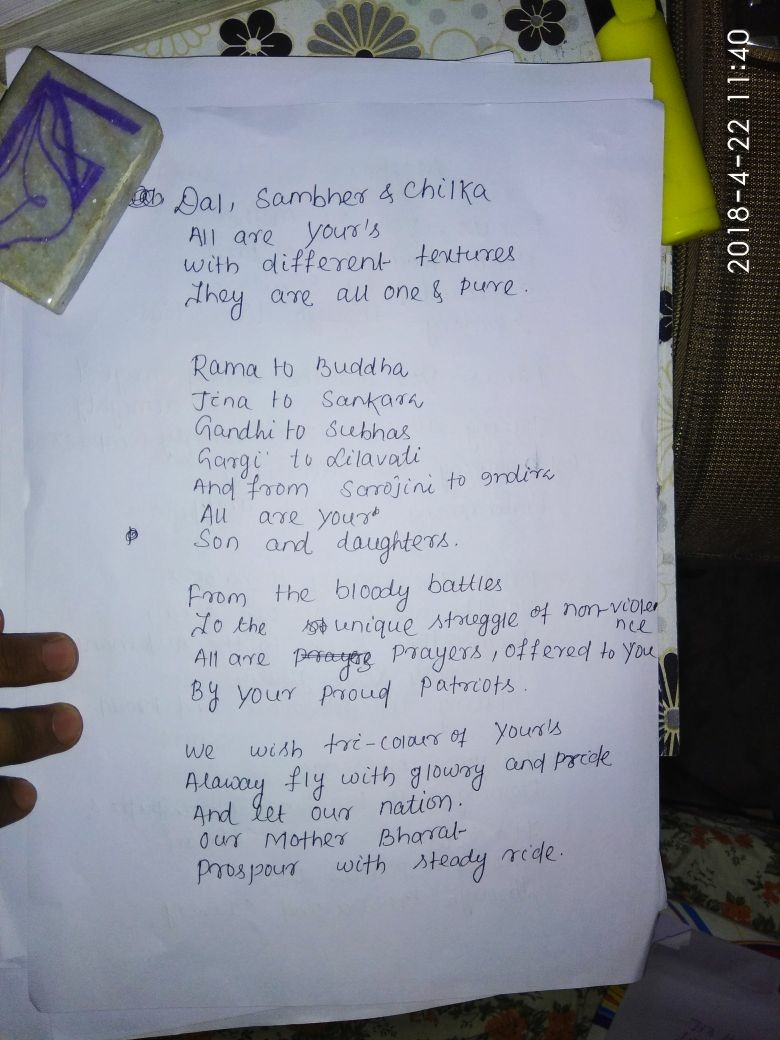 Dal, Sambher & Chilka
All are your's
with different textures
They are all one & pure.
Rama to Buddha
Jina to Sankara
Gandhi to Subhas
Gargi to Lilavati
And from Sarojini to Indira
All are your
Son and daughters.
From the bloody battles
To the unique struggle of non-violence
All are prayers, offered to you
By your proud Patriots.
We wish tri-colour of your's
Alaway fly with glowry and pride
And let our nation.
Our Mother Bharat
Prospour with steady ride.
2018-4-22 11:40